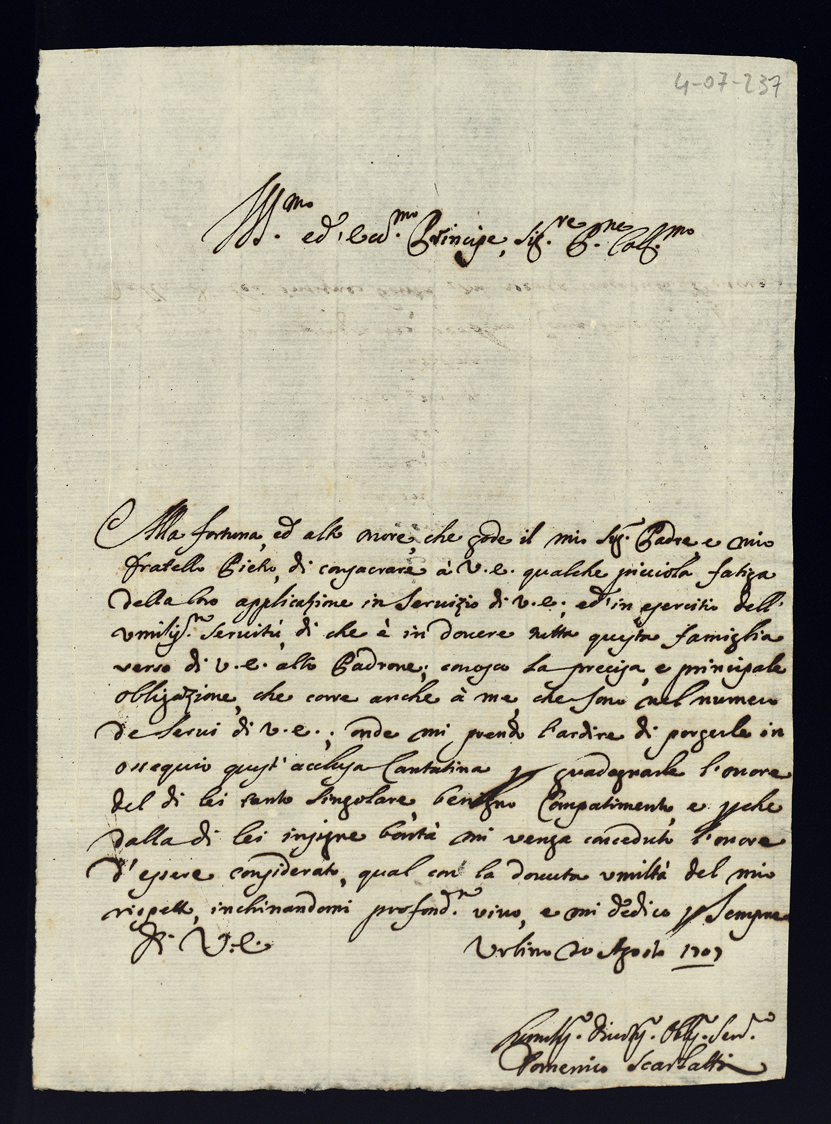 4-07-237
Ill.mo ed Ecc.mo Principe, Sig.re P.ne Coll.mo
Alla fortuna, ed alto onore, che gode il mio Sig.r Padre, e mio
fratello Pietro, di consacrare à V.E. qualche picciola fatiga
della loro applicazione in Servizio di V.E., ed in esercitio dell'
umiliss.a Servitù, di che è in dovere tutta questa famiglia
verso di V.E. alto Padrone; conosco la precisa, e principale
obligazione, che corre anche à me, che sono nel numero
de Servi di V.E.; onde mi prendo l'ardire di porgerle in
ossequio quest'acclusa Cantatina p guadagnarle l'onore
del di lei tanto Singolare benigno Compatimento, e pche
dalla di lei insigne bontà mi venga conceduto l'onore
d'essere considerato, qual con la dovuta umiltà del mio
rispetto, inchinandomi profond.e vivo, e mi dedico p Sempre
Di V.E. Urbino 20 Agosto 1707
Humiliss.o Divotiss.o Obl.o Ser.e
Domenico Scarlatti